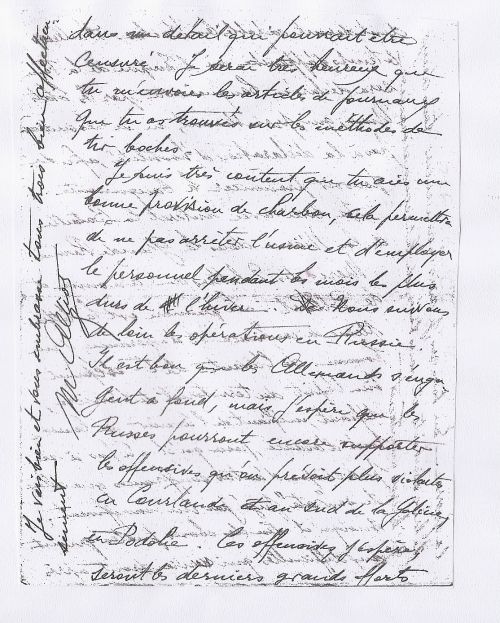 dans un détail qui pourrait être
censuré. Je serai très heureux que
tu m'envoies les articles de journaux
que tu as trouvés sur les méthodes de
tir boches.
Je suis très content que tu aies une
bonne provision de charbon, cela permettra
de ne pas arrêter l'usine et d'employer
le personnel pendant les mois les plus
durs de l'hiver. Nous suivons
de loin les opérations en Russie
Il est bon que les Allemands s'enga
gent à fond, mais j'espère que les
Russes pourront encore supporter
les offensives qu'on prédit plus violentes
en Courlande et au sud de la Galicie
en Podolie. Ces offensives j'espère
seront les derniers grands efforts
Je vais bien et vous embrasse tous trois bien affectueu
sement